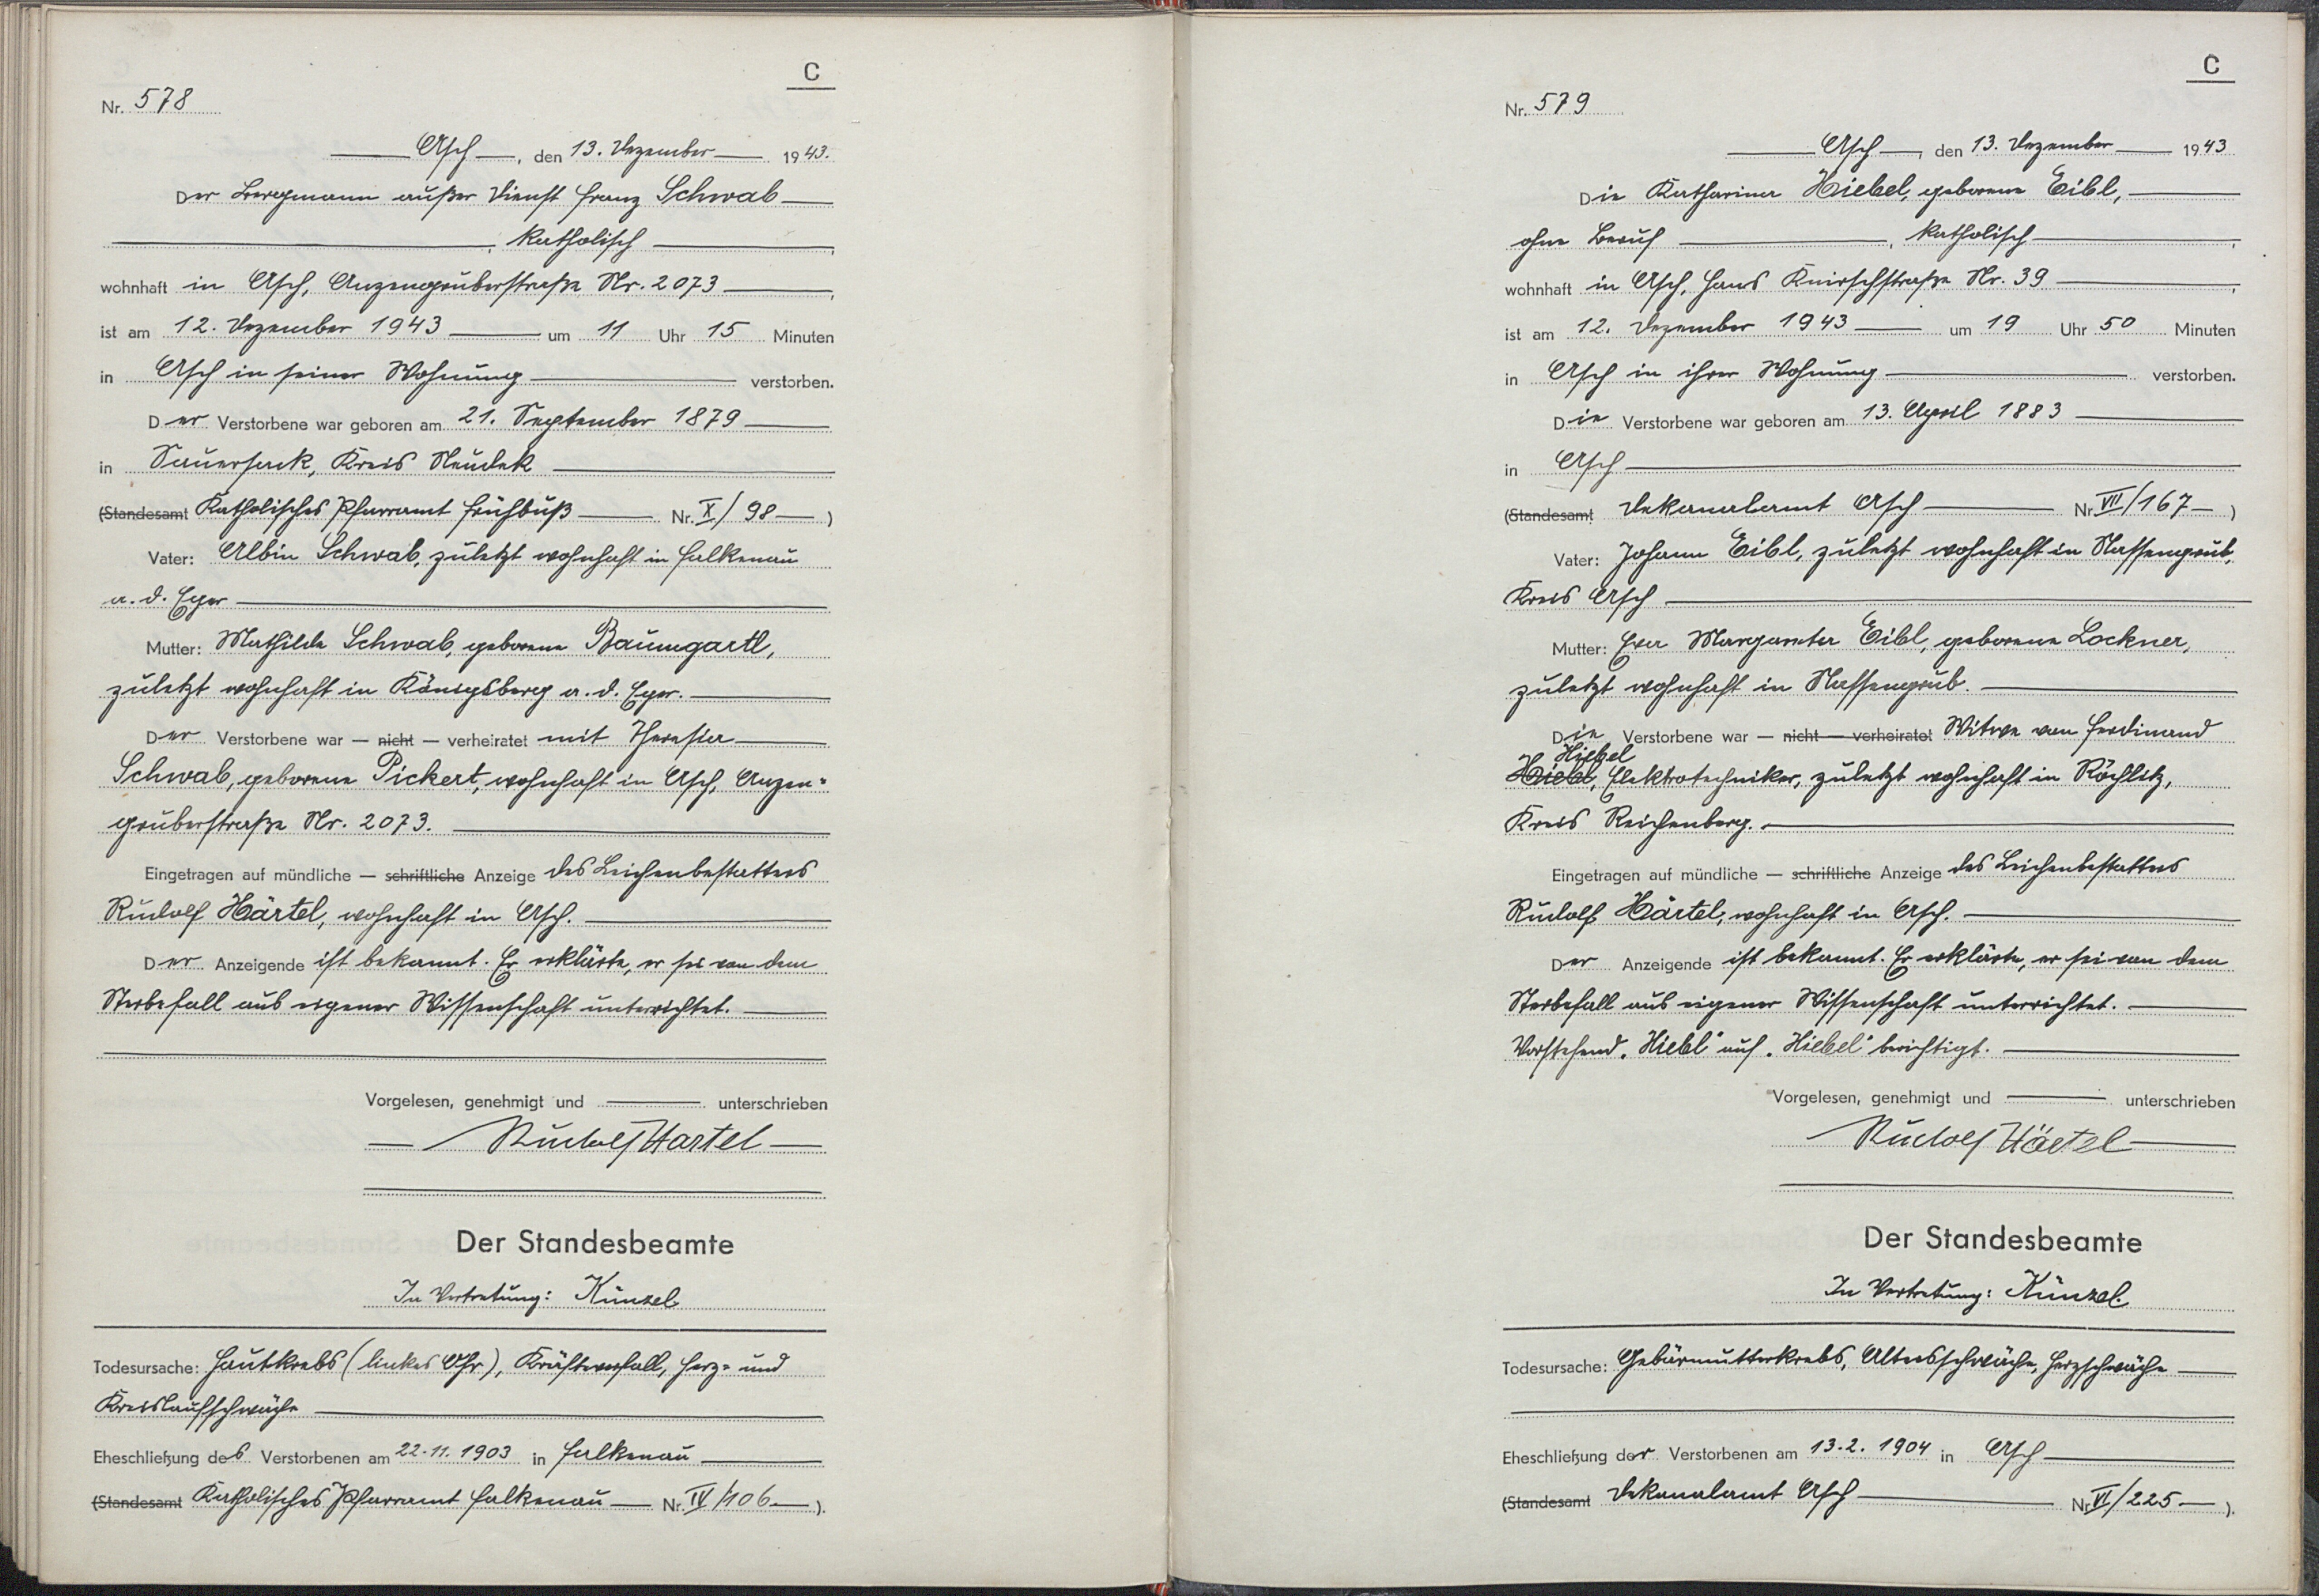 C
Nr. 578
Asch, den 13. Dezember 1943.
Der Bergmann außer Dienst Franz Schwab
, katholisch,
wohnhaft in Asch, Anzengruberstraße Nr. 2073,
ist am 12. Dezember 1943 um 11 Uhr 15 Minuten
in Asch in seiner Wohnung verstorben.
Der Verstorbene war geboren am 21. September 1879
in Sauersack, Kreis Neudek
(Standesamt Katholisches Pfarramt Frühbuß Nr. X/98)
Vater: Albin Schwab, zuletzt wohnhaft in Falkenau
a. d. Eger
Mutter: Mathilde Schwab, geborene Baumgartl,
zuletzt wohnhaft in Königsberg a. d. Eger.
Der Verstorbene war — nicht — verheiratet mit Theresia
Schwab, geborene Pickert, wohnhaft in Asch, Anzen-
gruberstraße Nr. 2073.
Eingetragen auf mündliche — schriftliche Anzeige des Leichenbestatters
Rudolf Härtel, wohnhaft in Asch.
Der Anzeigende ist bekannt. Er erklärte, er sei von dem
Sterbefall aus eigener Wissenschaft unterrichtet.
Vorgelesen, genehmigt und unterschrieben
Rudolf Härtel
Der Standesbeamte
In Vertretung: Künzel
Todesursache: Hautkrebs (linkes Ohr), Kräfteverfall, Herz- und
Kreislaufschwäche
Eheschließung des Verstorbenen am 22.11.1903 in Falkenau
(Standesamt Katholisches Pfarramt Falkenau Nr. IV/106).
C
Nr. 579
Asch, den 13. Dezember 1943
Die Katharina Hiebel, geborene Eibl,
ohne Beruf, katholisch,
wohnhaft in Asch, Hans Knirschstraße Nr. 39,
ist am 12. Dezember 1943 um 19 Uhr 50 Minuten
in Asch in ihrer Wohnung verstorben.
Die Verstorbene war geboren am 13. April 1883
in Asch
(Standesamt Dekanalamt Asch Nr. VII/167)
Vater: Johann Eibl, zuletzt wohnhaft in Nassengrub,
Kreis Asch
Mutter: Eva Margareta Eibl, geborene Lockner,
zuletzt wohnhaft in Nassengrub.
Die Verstorbene war — nicht — verheiratet Witwe von Ferdinand
Hiebel
Hiebl, Elektrotechniker, zuletzt wohnhaft in Röchlitz,
Kreis Reichenberg.
Eingetragen auf mündliche — schriftliche Anzeige des Leichenbestatters
Rudolf Härtel, wohnhaft in Asch.
Der Anzeigende ist bekannt. Er erklärte, er sei von dem
Sterbefall aus eigener Wissenschaft unterrichtet.
Vorstehend „Hiebl" auf „Hiebel" berichtigt.
Vorgelesen, genehmigt und unterschrieben
Rudolf Härtel
Der Standesbeamte
In Vertretung: Künzel.
Todesursache: Gebärmutterkrebs, Altersschwäche, Herzschwäche
Eheschließung der Verstorbenen am 13.2.1904 in Asch
(Standesamt Dekanalamt Asch Nr. VI/225).